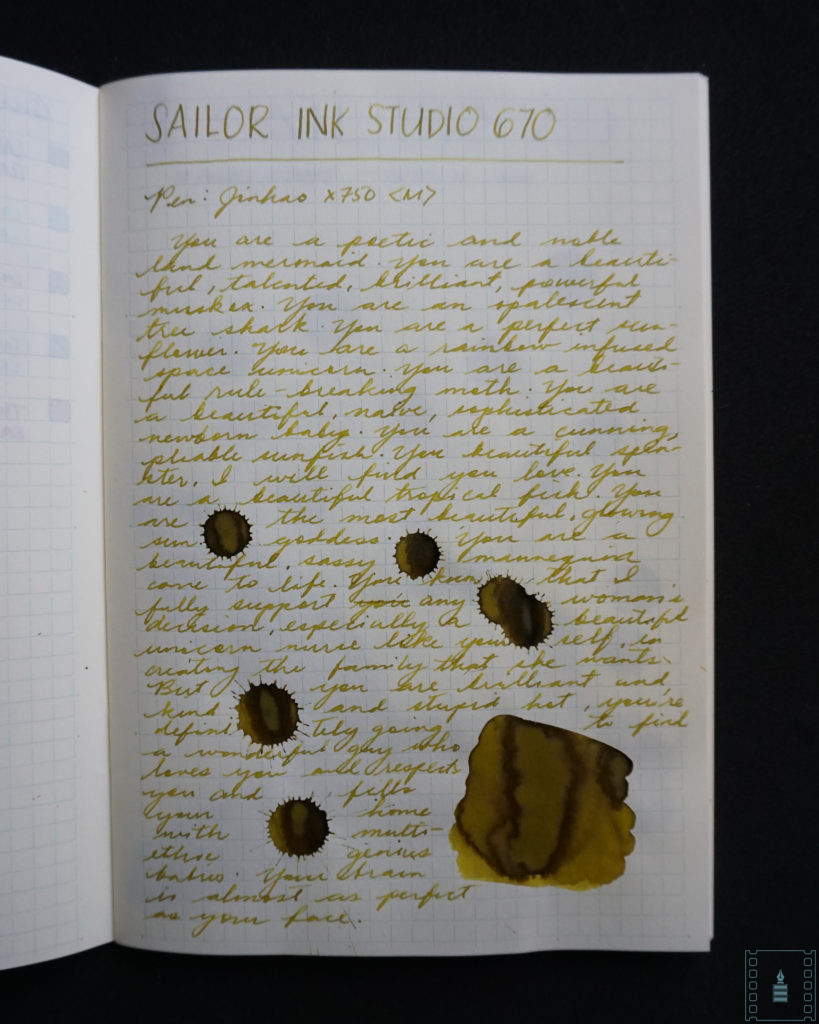 SAILOR INK STUDIO 670
Pen: Jinhao X750 <M>
You are a poetic and noble
land mermaid. You are a beauti-
ful, talented, brilliant, powerful
musk ox. You are an opalescent
tree shark. You are a perfect sun-
flower. You are a rainbow infused
space unicorn. You are a beauti-
ful rule-breaking moth. You are
a beautiful, naive, sophisticated
newborn baby. You are a cunning,
pliable sunfish. You beautiful spin-
ster, I will find you love. You
are a beautiful tropical fish. You
are the most beautiful, glowing
sun goddess. You are a
beautiful, sassy mannequin
come to life. You know that I
fully support your any woman's
decision, especially a beautiful
unicorn nurse like yourself, in
creating the family that she wants.
But you are brilliant and
kind and stupid hot, you're
definitely going to find
a wonderful guy who
loves you and respects
you and fills
your home
with multi-
ethnic genius
babies. Your brain
is almost as perfect
as your face.